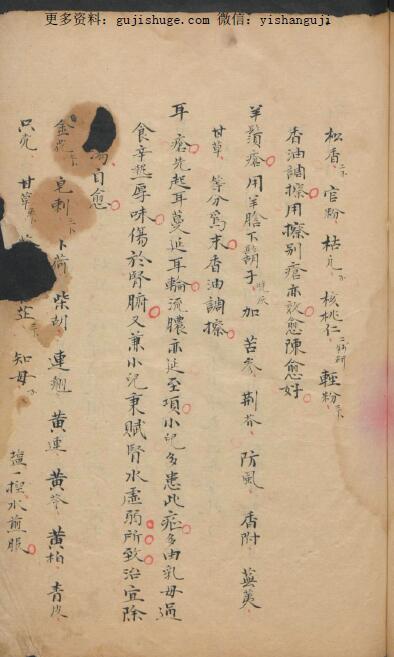 更多资料：gujishuge.com 微信：yishanguji
松香 官粉 枯凡 核桃仁 輕粉
香油調擦用擦别瘡亦效愈陳愈好
羊鬍瘡用羊膽下鬍子 加 苦参 荆芥 防風 香附 蕪荑
甘草 等分爲末香油調擦
耳瘡先起耳蔓延耳輪流膿亦延至項小兒多患此症多由乳母過
食辛熱厚味傷於腎腑又兼小兒秉賦腎水虚弱所致治宜除
湯自愈
金 皂刺 卜荷 柴胡 連翹 黄連 黄芩 黄柏 青皮
只壳 甘草 知母 塩一撮水煎服